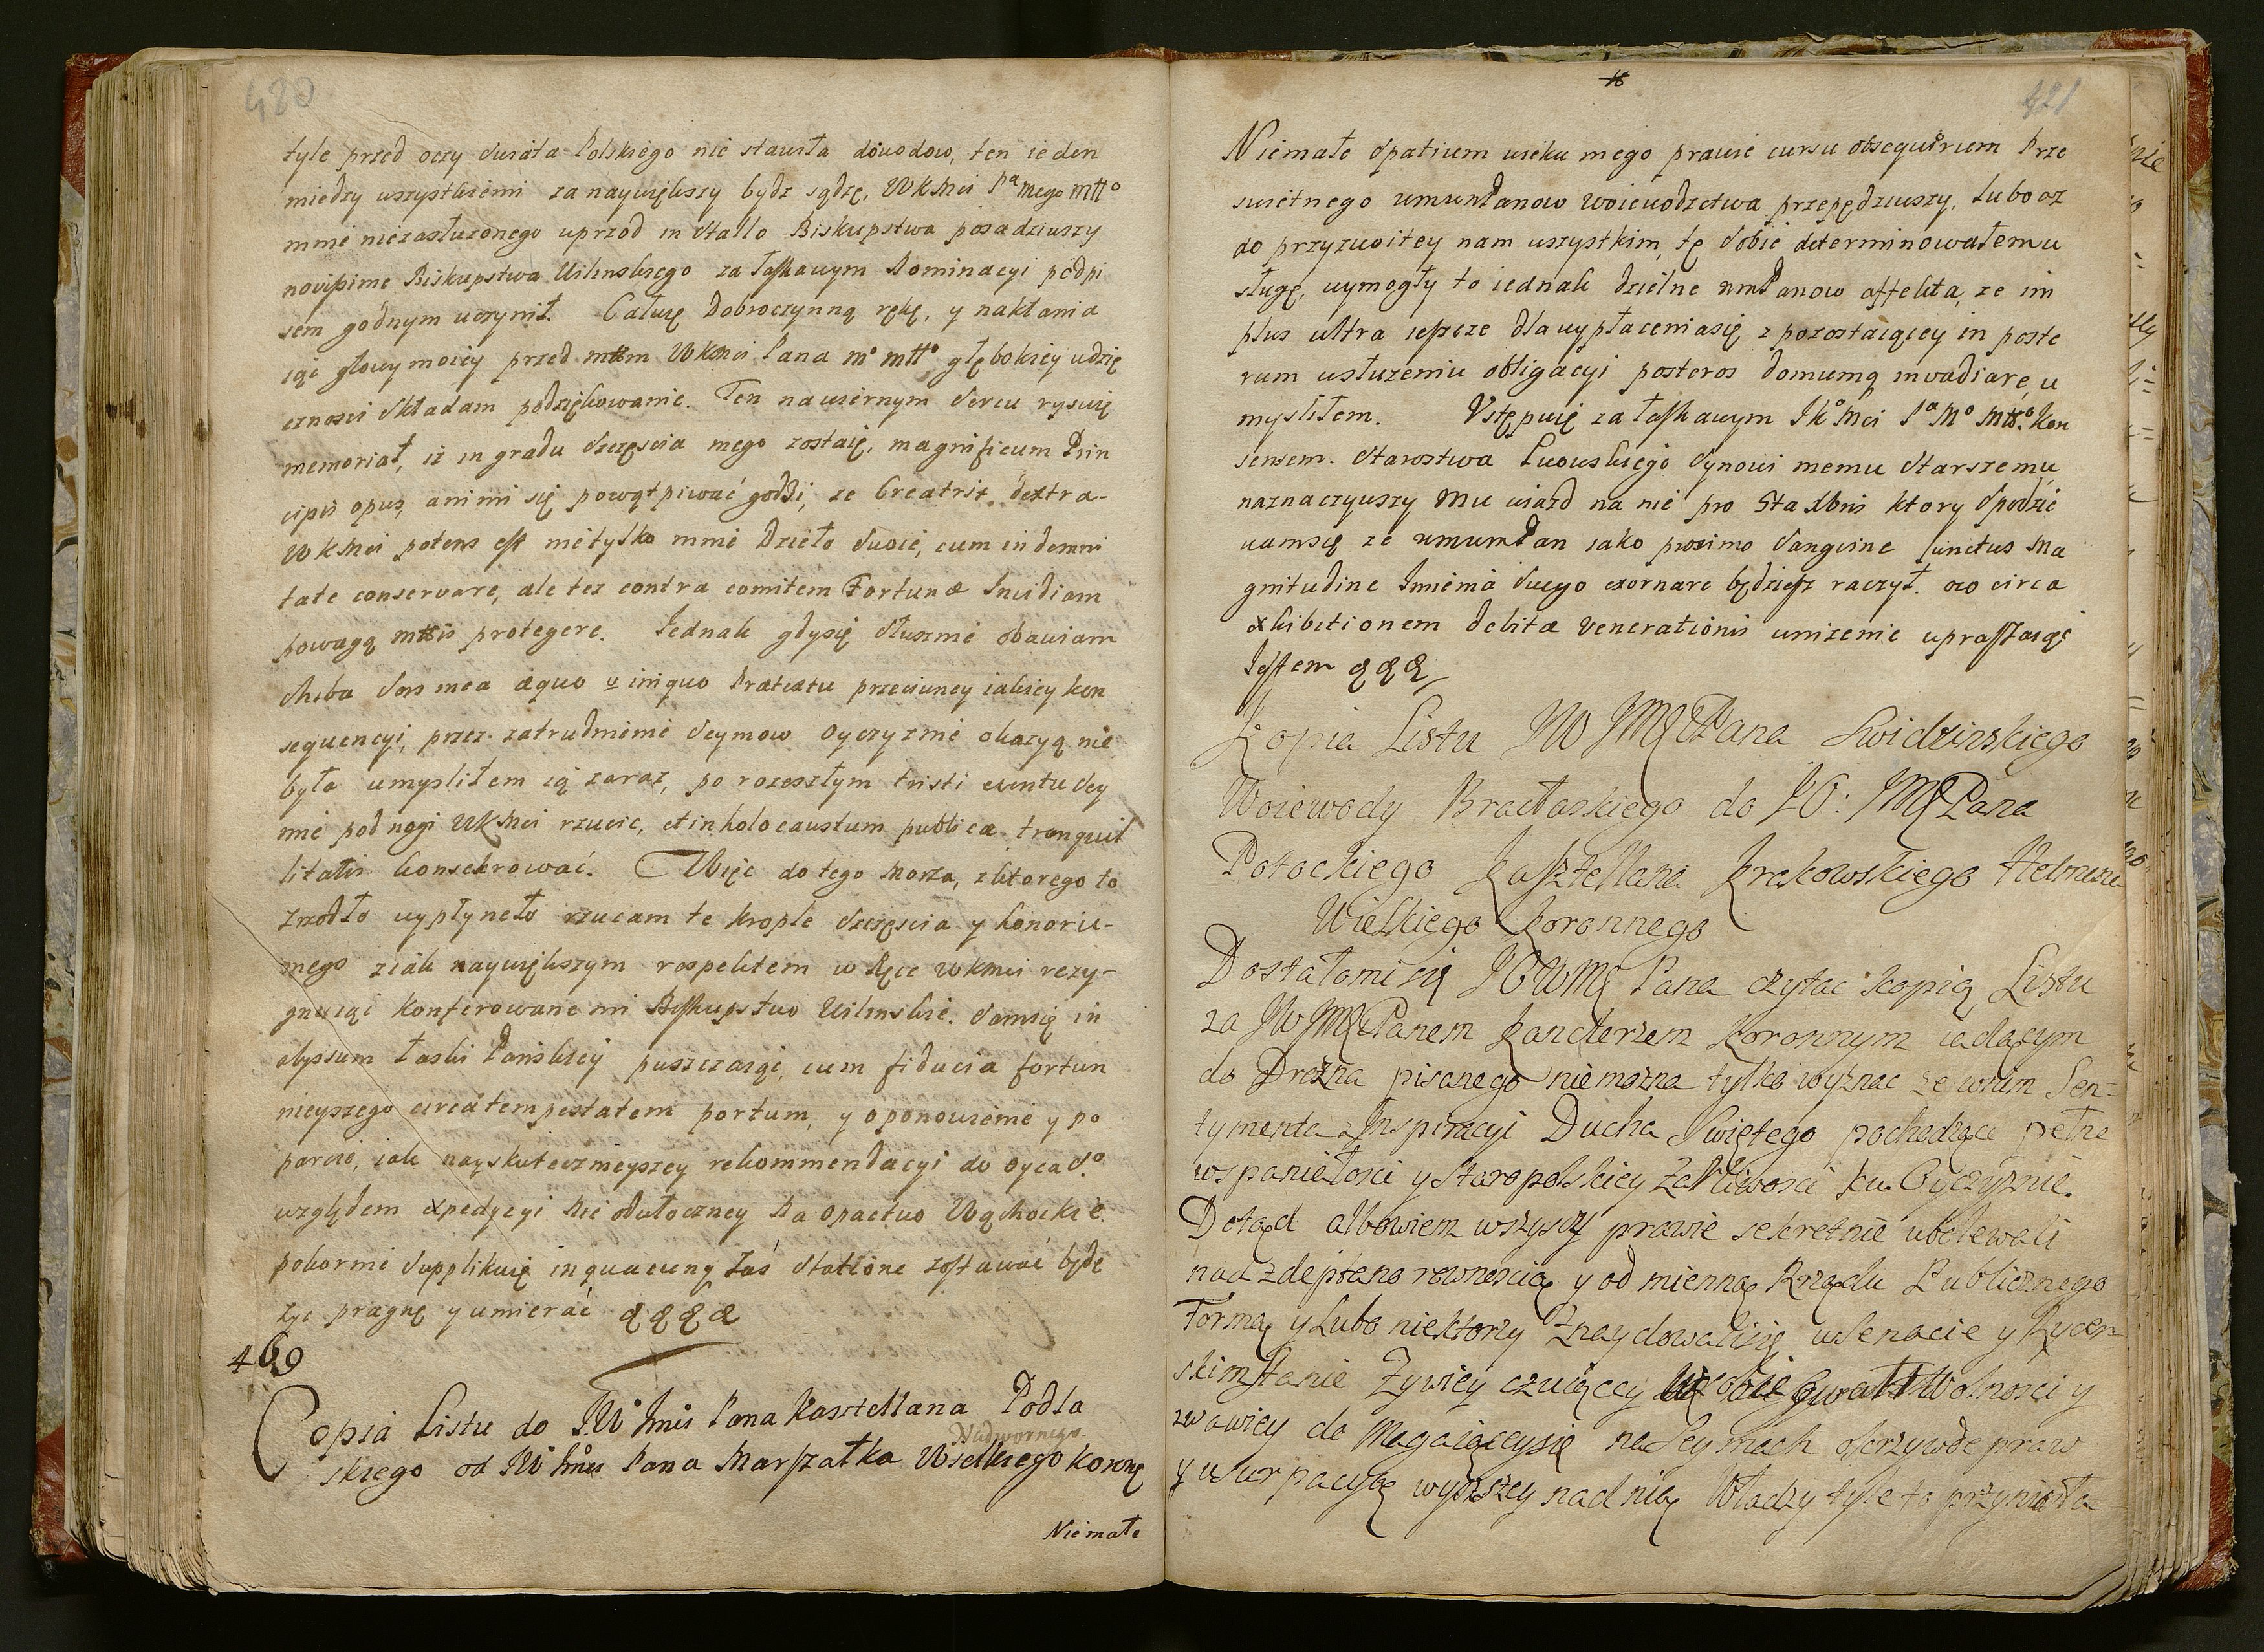 480
tyle przed oczy swiata Polskiego nie stawiła dowodow, ten ieden
miedzy wszystkiemi za naywiększy bydz sądzę, WKMci Pa mego mtto
mnie niezasłużonego uprzod in Stallo Biskupstwa posadziwszy
novissime Biskupstwa Wilenskiego za łaskawym Nominacyi podpi
sem godnym uczynił. Całuię Dobroczynną rękę, y nakłania
iąc głowy moiey przed WKMci Pana mo mtto głębokiey wdzię
cznosci składam podziękowanie. Ten na wiernym sercu rysuię
memoriał, iż in gradu szczęscia mego zostaię, magnificum Prin
cipis opus, ani mi się powątpiwać godzi, ze Creatrix dextra
WKMci potens est nie tylko mnie Dzieło swoie, cum indemni
tate conservare, ale tez contra comitem Fortunæ Invidiam
powagą protegere. Iednak gdy się słusznie obawiam
Aby sors mea æquo v iniquo Prætextu przeciwney iakiey kon
sequencyi, przez zatrudnienie Seymow Oyczyznie okazyą nie
była umysliłem ią zaraz, po rozeszłym tristi eventu Sey
mie pod nogi WKMci rzucic, et in holocaustum publicæ tranquil
litatis konsekrować. Więc do tego Morza, z ktorego to
Zrodło wypłyneło rzucam te krople szczęscia y honoru
mego z iak naywiększym respektem w Ręce WKMci rezy-
gnuiąc konferowane mi Biskupstwo Wilenskie. Sam się in
abyssum łaski Panskiey puszczaiąc, cum fiducia fortun
nieyszego circa tempestatem portum, y o ponowienie y po
parcie, iak nayskutecznieyszey rekommendacyi do Oyca So
względem expedycyi Nie odwłoczney Na Opactwo Wąchockie
pokornie supplikuię in quacunq zaś statione zostawać będę
zyc pragnę y umierać
469
Copia Listu do J.W Jmci Pana Kasztellana Podla
Nadwornego
skiego od JW Jmci Pana Marszałka Wielkiego koronę
Niemałe
421
Niemałe spatium wieku mego prawie cursu obsequiorum Prze
swietnego Woiewodztwa przepędziwszy, lubo oz
do przyzwoitey nam wszystkim, tę sobie determinowałem u
sługę, wymogły to iednak dzielne affekta, ze im
plus ultra ieszcze dla wypłacenia się z pozostaiącey in poste
rum usłuzeniu obligacyi posteros domumq invadiare, u
mysliłem. Vstępuię za łaskawym JKMci Pa Mo kon
sensem. Starostwa Lwowskiego Synowi memu Starszemu
naznaczywszy mu wiazd na nie pro 8bris ktory spodzie
wam się ze iako proximo sangvine iunctus Ma
gnitudine Imienia swego exornare będziesz raczył. o co circa
exhibitionem debitæ venerationis unizenie upraszaiąc
Jestem
Kopia Listu JW JMći Pana Swidzinskiego
Woiewody Bracławskiego do JO: JMći Pana
Potockiego Kasztellana Krakowskiego Hetmana
Wielkiego Koronnego
Dostało mi się JOWMć Pana czytać kopią Listu
za JW JMći Panem Kanclerzem Koronnym iadącym
do Drezna pisanego nie można tylko wyznac że w nim Sen-
tymenta z Inspiracyi Ducha Swiętego pochodzące pełne
wspaniełosci y staropolskiey Zarliwosci ku Oyczyznie.
Dotąd albowiem wszyscy prawie sekretnie ubolewali
nad zdeptaną rownoscią y odmienną Rządu Publicznego
Formą y Lubo niektorzy Znaydowali się w Senacie y Rycer
skim Stanie Zywiey czuiący w sobie gwałt Wolnosci y
zwawiey domagaiący się na Seymach o krzywdę praw
y usurpacyę wyższey nad nię Władzy tyle to przyniosło